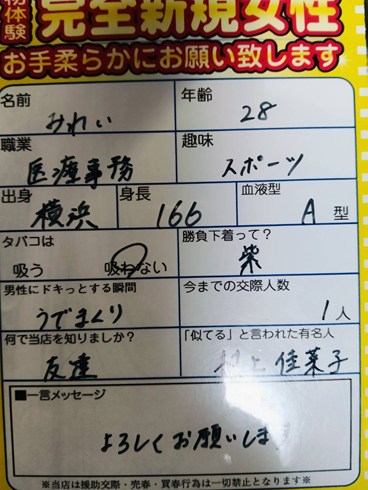 物体験
完全新規女性
お手柔らかにお願い致します
名前 みれい
年齢 28
職業 医療事務
趣味 スポーツ
出身 横浜
身長 166
血液型 A 型
タバコは 吸う 吸わない
勝負下着って? 紫
男性にドキっとする瞬間 うでまくり
今までの交際人数 1人
何で当店を知りましたか? 友達
「似てる」と言われた有名人 村上佳菜子
■一言メッセージ
よろしくお願いします
※当店は援助交際・売春・買春行為は一切禁止となります※